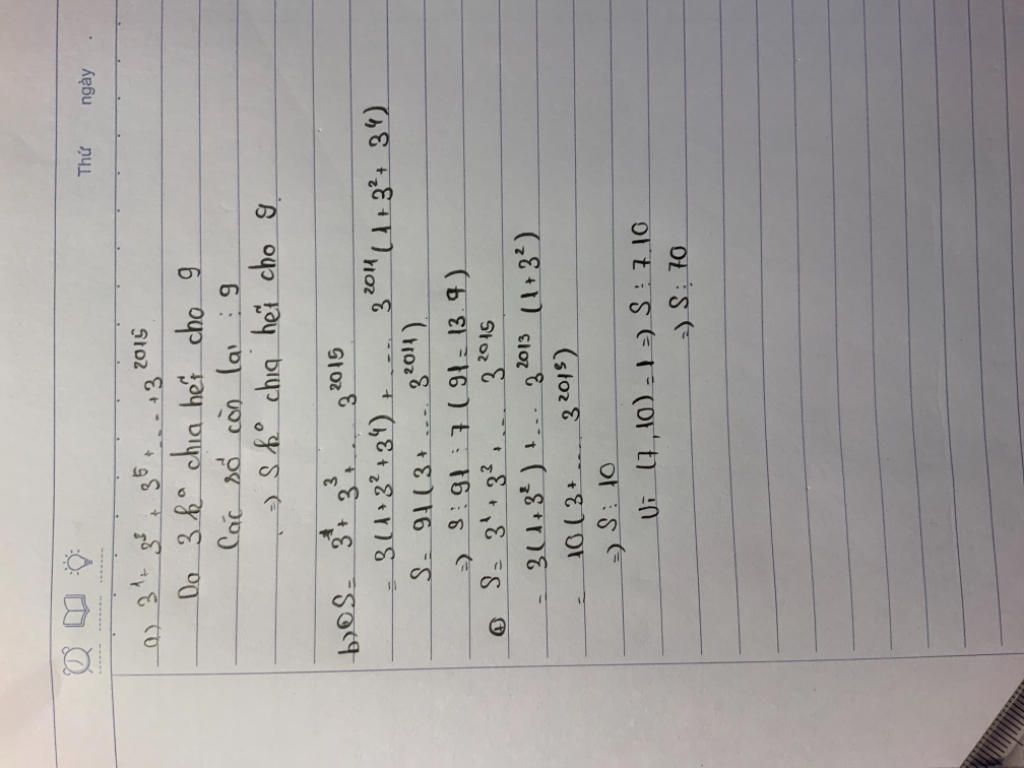 Thứ ngày
a) 3¹ + 3³ + 3⁵ + .... + 3²⁰¹⁵
Do 3 ko chia hết cho 9
Các số còn lại : 9
=) S ko chia hết cho 9
b) ① S = 3¹ + 3³ + .... 3²⁰¹⁵
= 3(1+3²+3⁴) + .... 3²⁰¹¹(1+3²+3⁴)
S = 91(3+ .... 3²⁰¹¹)
=) S : 91 : 7 (91 = 13.7)
② S = 3¹ + 3² + ... 3²⁰¹⁵
= 3(1+3²) + ... 3²⁰¹³ (1+3²)
= 10(3+ .... 3²⁰¹⁵)
=) S : 10
Vì (7,10) = 1 =) S : 7.10
=) S : 70